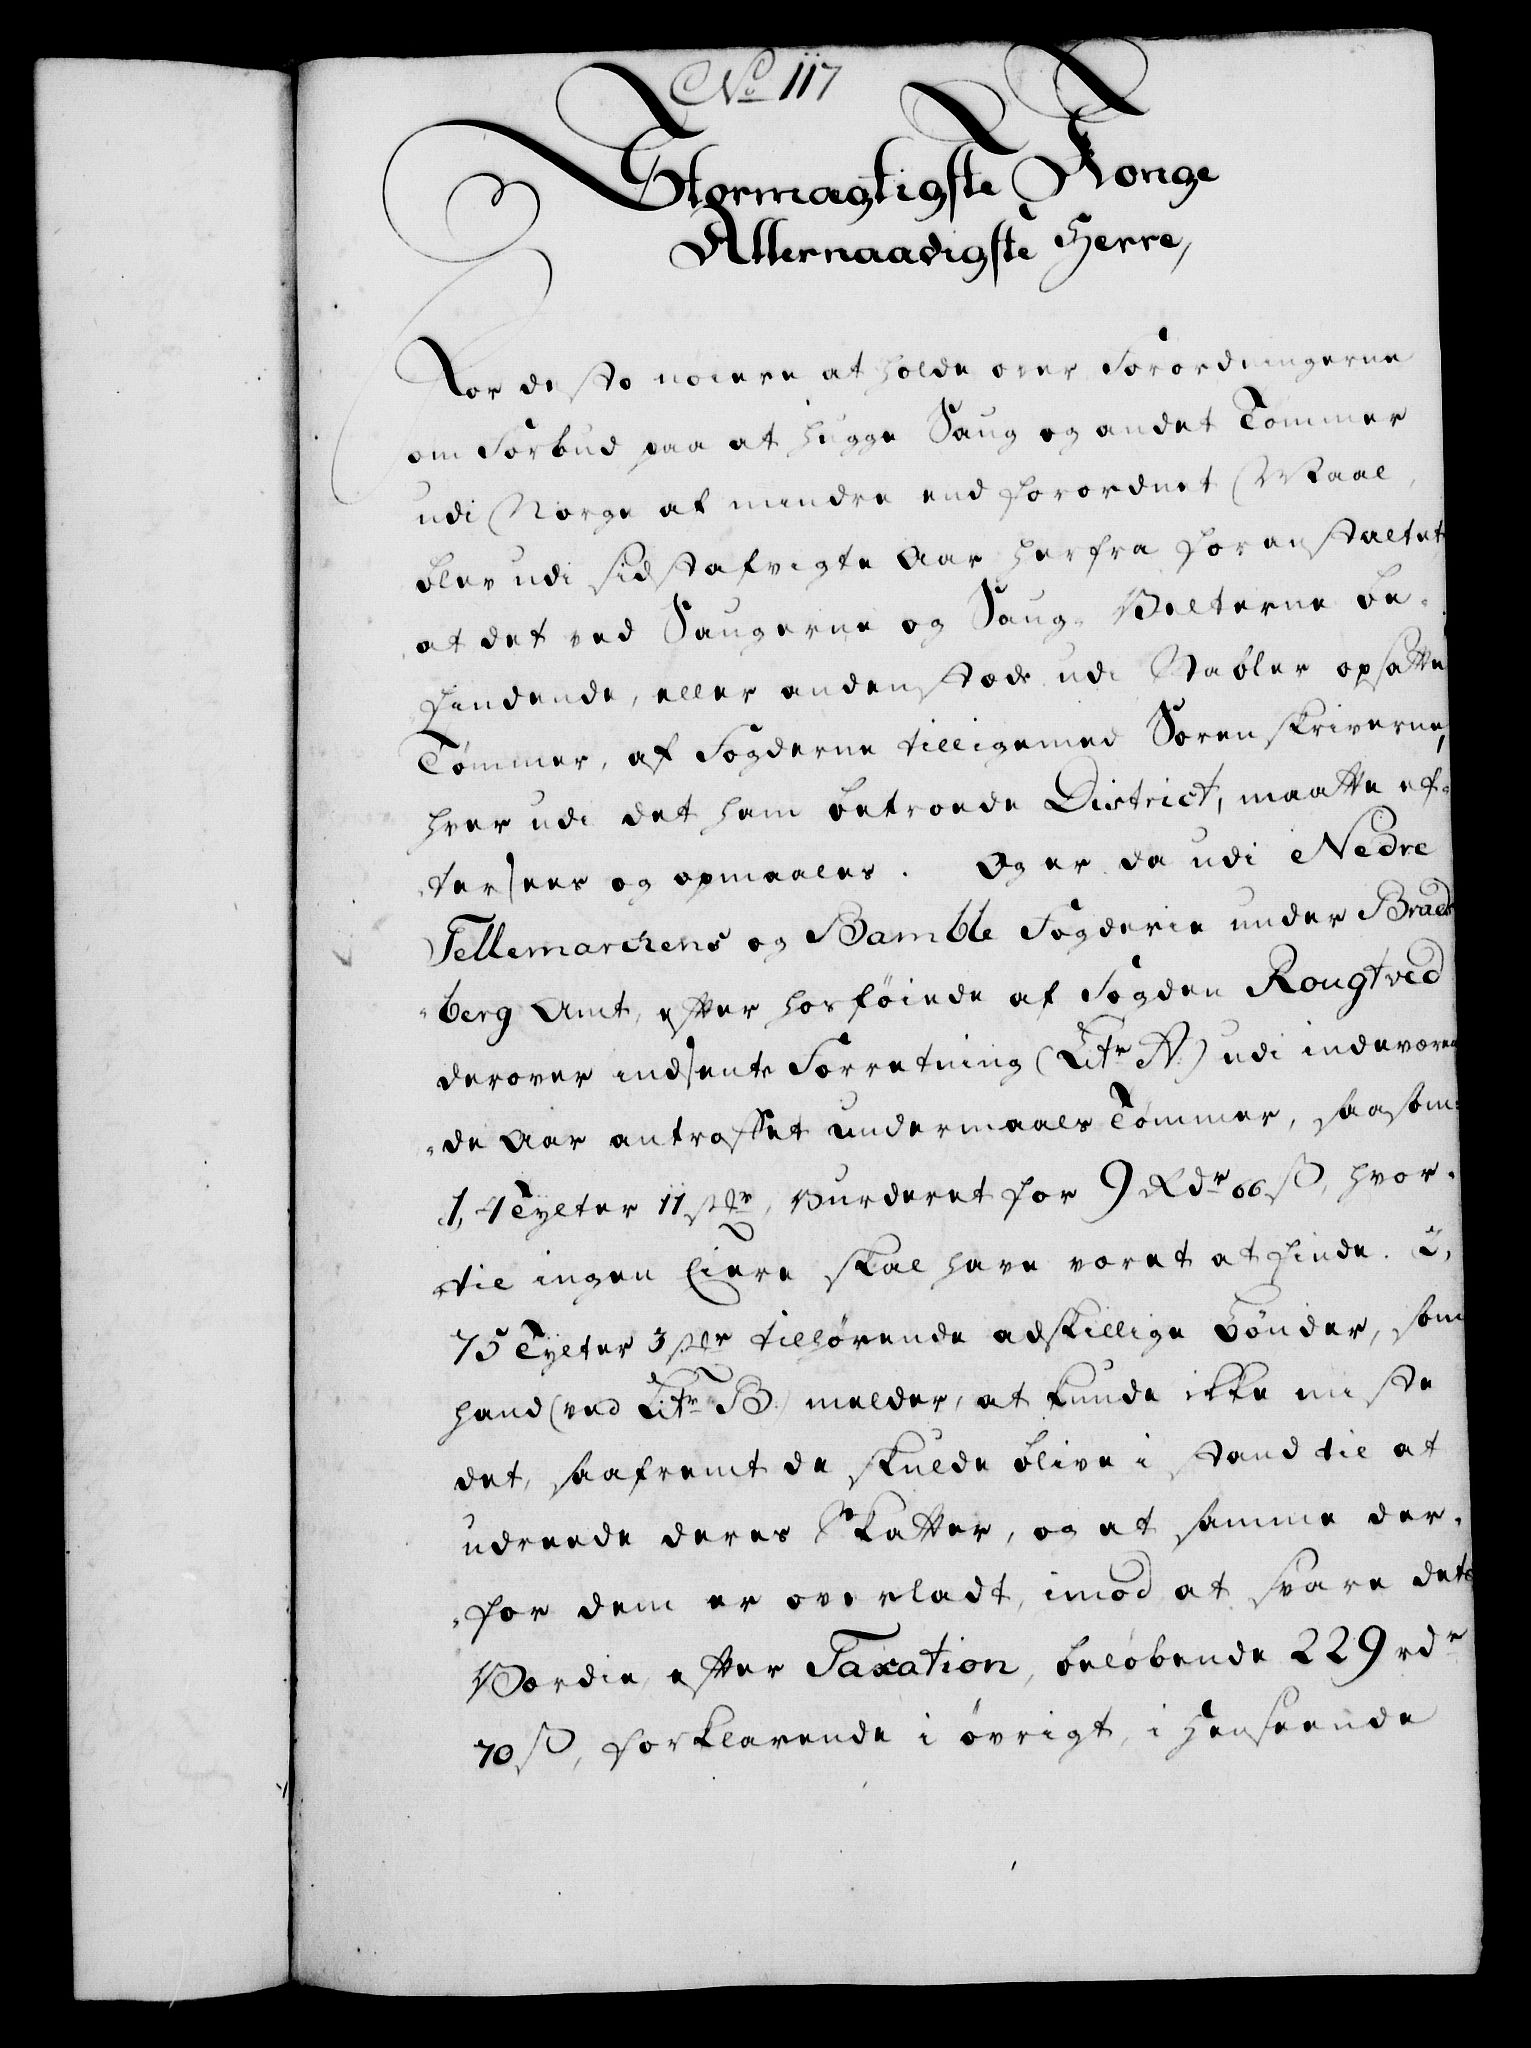 No 117
Stormægtigste Konge
Allernaadigste Herre,
For desto nöiere at holde over Forordningerne
om Forbud paa at hugge Saug og andet Tömmer
udi Norge af mindre end forordnet Maal,
blev udi sidstafvigte Aar herfra foranstaltet
at det ved Saugerne og Saug-Velterne be-
findende, eller andenstæds udi Stabler opsatte
Tömmer, af Fogderne tilligemed Sorenskriverne,
hver udi det ham betroede District, maatte ef-
tersees og opmaales. Og er da udi Nedre
Tellemarckens og Bamble Fogderie under Brads-
berg Amt, efter hosföiede af Fogden Rougtved
derover indsente Forretning (Litr A.) udi indeværen-
de Aar antroffet undermaals Tömmer, saasom:
1, 4 Tylter 11 stkr, Vurderet for 9 Rdr 66 ß, hvor-
til ingen Eiere skal have været at finde. 2,
75 Tylter 3 stkr tilhørende adskillige Bönder, som
hand (ved Litr B.) melder, at kunde ikke miste
det, saafremt de skulde blive i stand til at
udreede deres Skatter, og at samme der-
for dem er overladt, imod at svare dets
Værdie, efter Taxation, beløbende 229 rdr
70 ß, forklarende i övrigt, i Henseende